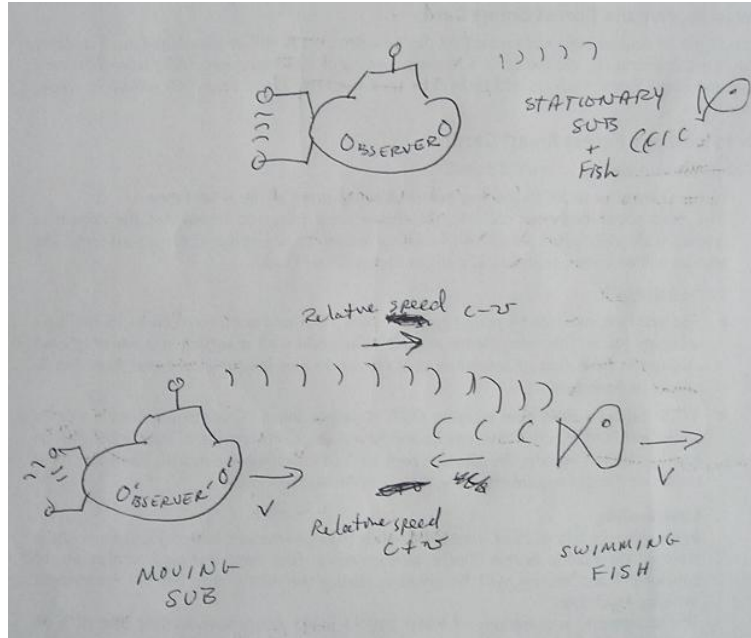 OBSERVER O
STATIONARY
SUB
+
Fish
Relative speed c-v
O'BSERVER' O'
V
Relative speed
c+v
V
MOVING
SUB
SWIMMING
FISH